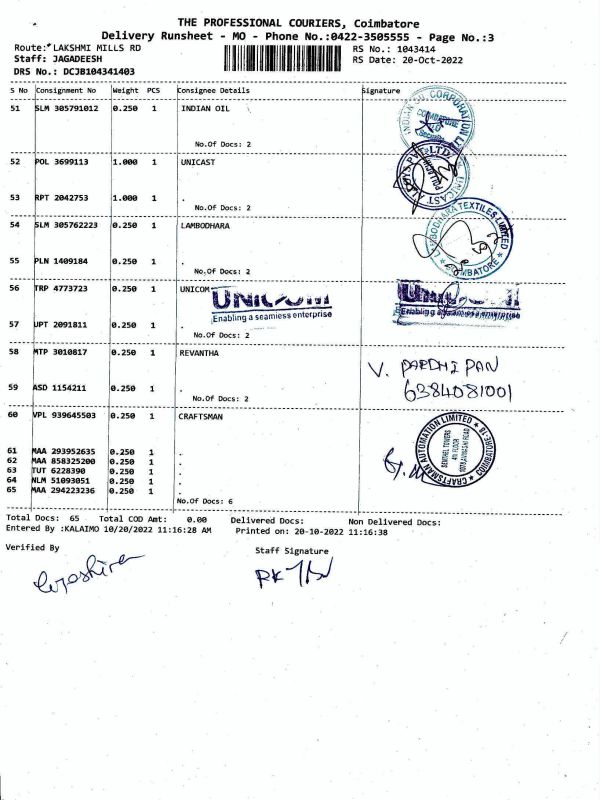 THE PROFESSIONAL COURIERS, Coimbatore
Delivery Runsheet - MO - Phone No.:0422-3505555 - Page No.:3
Route:*LAKSHMI MILLS RD RS No.: 1043414
Staff: JAGADEESH RS Date: 20-Oct-2022
DRS No.: DCJB104341403
S No Consignment No Weight PCS Consignee Details Signature
51 SLM 305791012 0.250 1 INDIAN OIL
No.Of Docs: 2
52 POL 3699113 1.000 1 UNICAST
53 RPT 2042753 1.000 1 .
No.Of Docs: 2
54 SLM 305762223 0.250 1 LAMBODHARA
LAMBODHARA TEXTILES LIMITED
COIMBATORE
55 PLN 1409184 0.250 1 .
No.Of Docs: 2
56 TRP 4773723 0.250 1 UNICOM
UNICOM
Enabling a seamless enterprise
57 UPT 2091811 0.250 1 .
No.Of Docs: 2
58 MTP 3010817 0.250 1 REVANTHA
V.
6384081001
59 ASD 1154211 0.250 1 .
No.Of Docs: 2
60 VPL 939645503 0.250 1 CRAFTSMAN
CRAFTSMAN AUTOMATION LIMITED
COIMBATORE-18
SENTHIL TOWERS
4th FLOOR
AVINASHI ROAD
61 MAA 293952635 0.250 1 .
62 MAA 858325200 0.250 1 .
63 TUT 6228390 0.250 1 .
64 NLM 51093051 0.250 1 .
65 MAA 294223236 0.250 1 .
No.Of Docs: 6
Total Docs: 65 Total COD Amt: 0.00 Delivered Docs: Non Delivered Docs:
Entered By :KALAIMO 10/20/2022 11:16:28 AM Printed on: 20-10-2022 11:16:38
Verified By Staff Signature